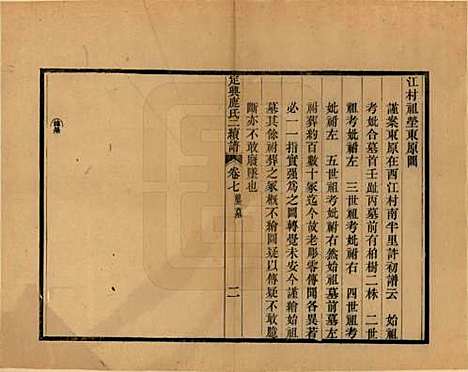 江村祖塋東原圖
謹案東原在西江村南半里許初譜云　始祖
考妣合墓首壬趾丙墓前有柏樹二株　二世
祖考妣祔左　三世祖考妣祔右　四世祖考
妣祔左　五世祖考妣祔右然始祖墓前墓左
祔葬約百數十冢迄今故老彫零傳聞各異若
必一一指實强爲之圖轉覺未安今謹繪始祖
墓其餘祔葬之冢概不繪圖疑以傳疑不敢臆
斷亦不敢廢墜也
定興鹿氏二續譜　卷七　墓　二